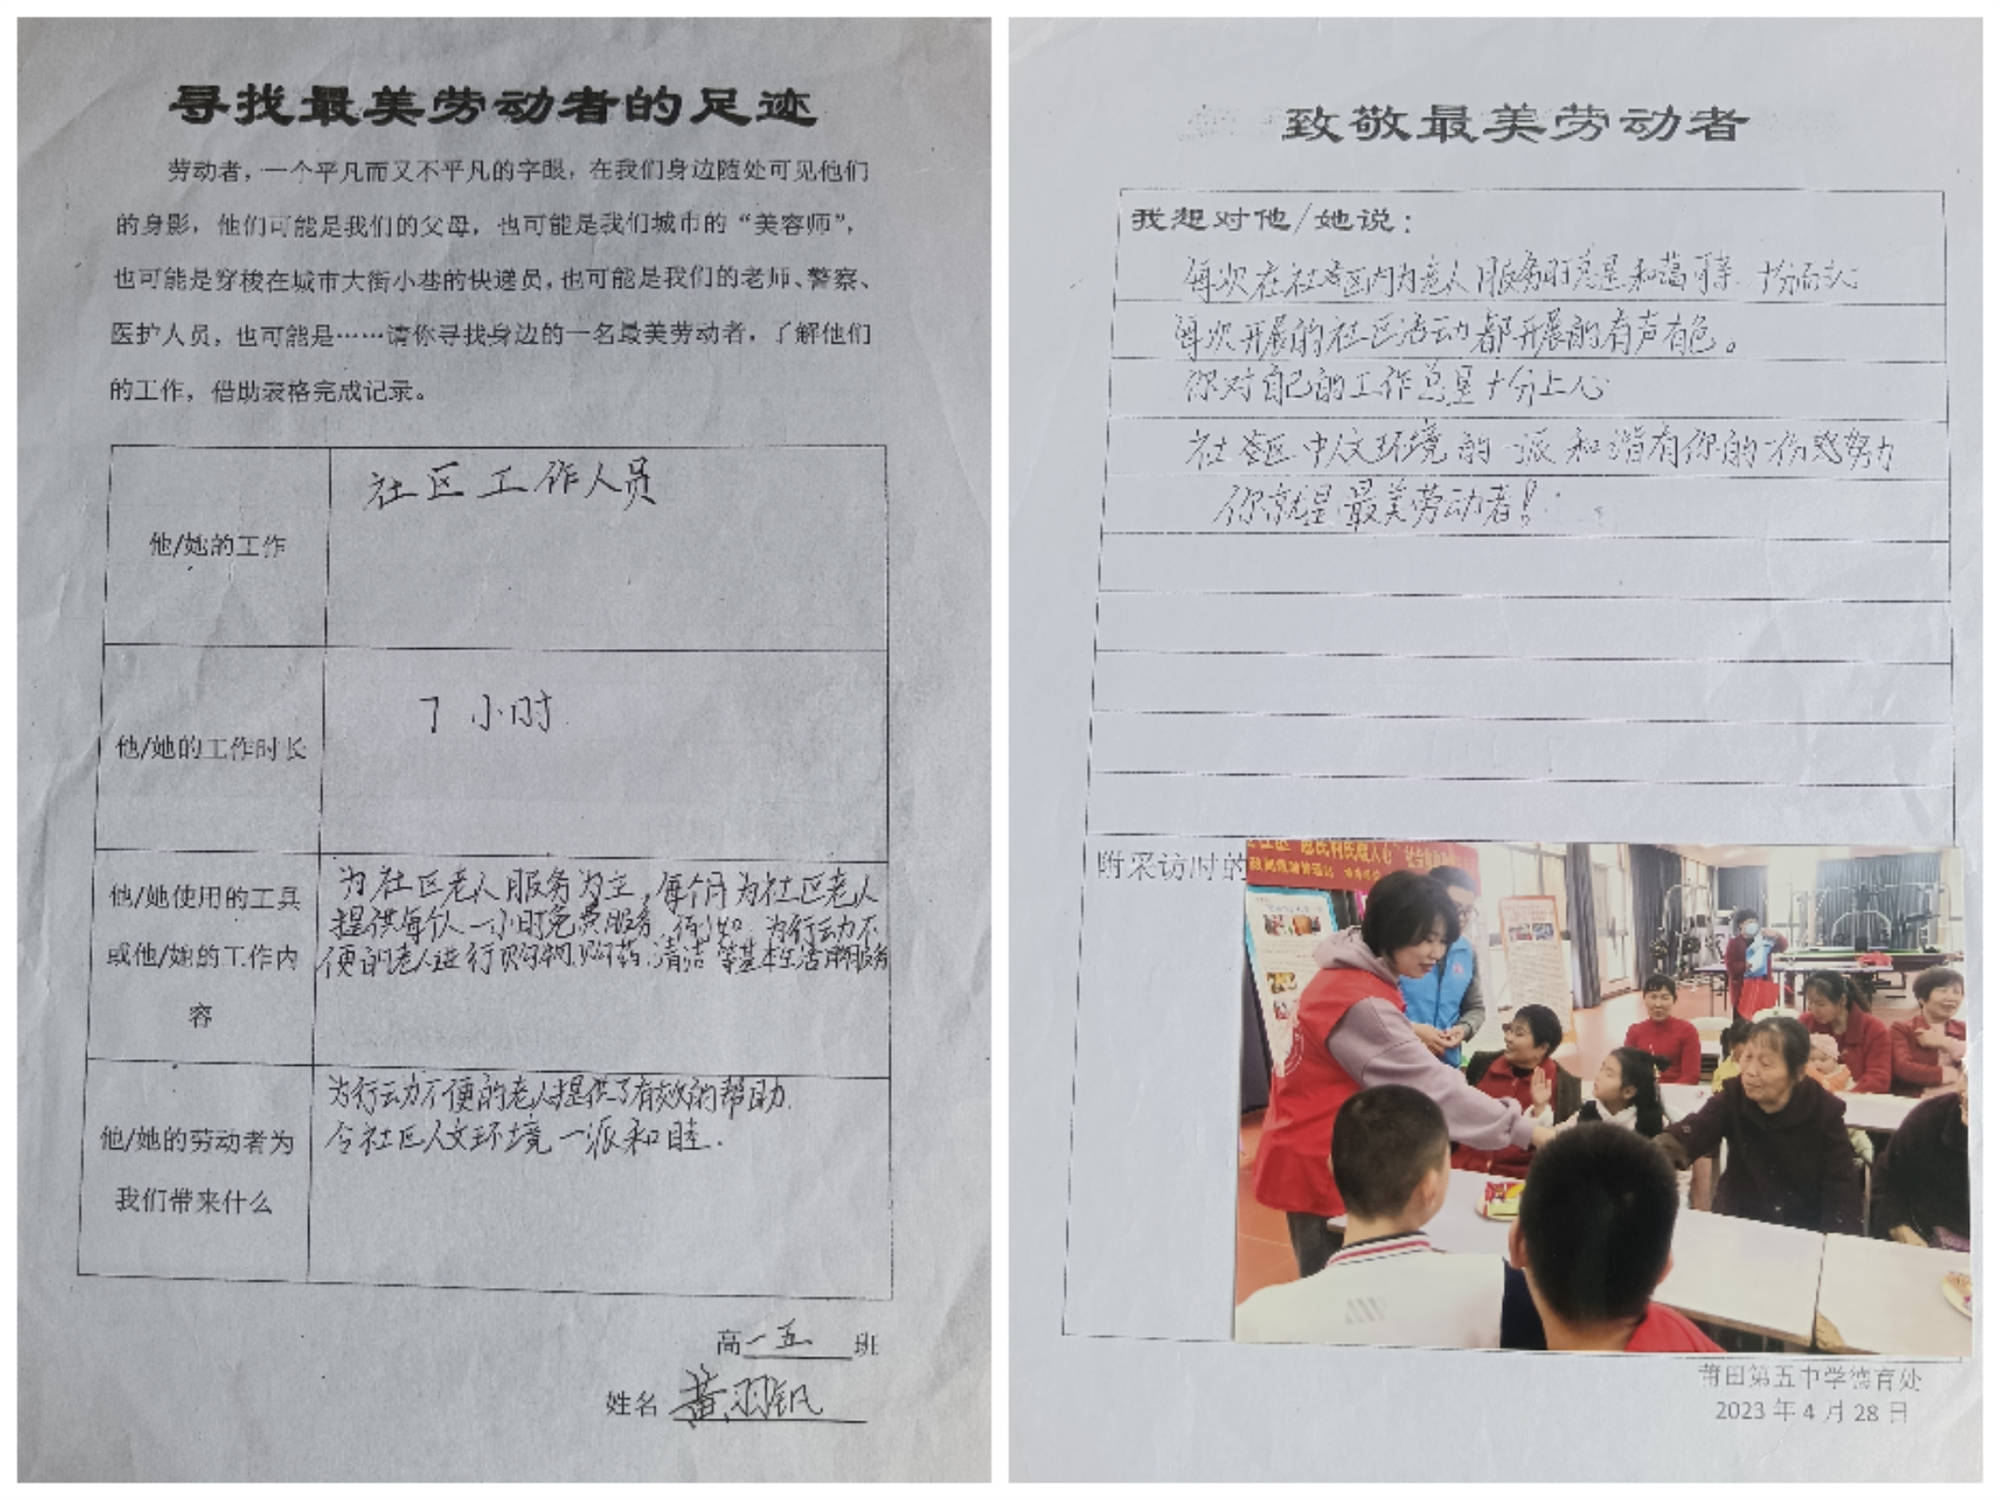 寻找最美劳动者的足迹
劳动者，一个平凡而又不平凡的字眼，在我们身边随处可见他们
的身影，他们可能是我们的父母，也可能是我们城市的“美容师”，
也可能是穿梭在城市大街小巷的快递员，也可能是我们的老师、警察、
医护人员，也可能是……请你寻找身边的一名最美劳动者，了解他们
的工作，借助表格完成记录。
他/她的工作
社区工作人员
他/她的工作时长
7 小时
他/她使用的工具
或他/她的工作内
容
为社区老人服务为主，每个月为社区老人
提供每人一小时免费服务，例如：为行动不
便的老人进行购物.购药.清洁等基本生活服务
他/她的劳动者为
我们带来什么
为行动不便的老人提供了有效的帮助.
令社区人文环境一派和睦.
高一五班
姓名 黄羽钒
致敬最美劳动者
我想对他/她说：
每次在社区内为老人服务时总是和蔼可亲.十分耐心
每次开展的社区活动都开展的有声有色。
你对自己的工作总是十分上心
社区中人文环境的一派和谐有你的一份努力
你就是最美劳动者！
附采访时的
惠民利民暖人心
莆田第五中学德育处
2023 年 4 月 28 日